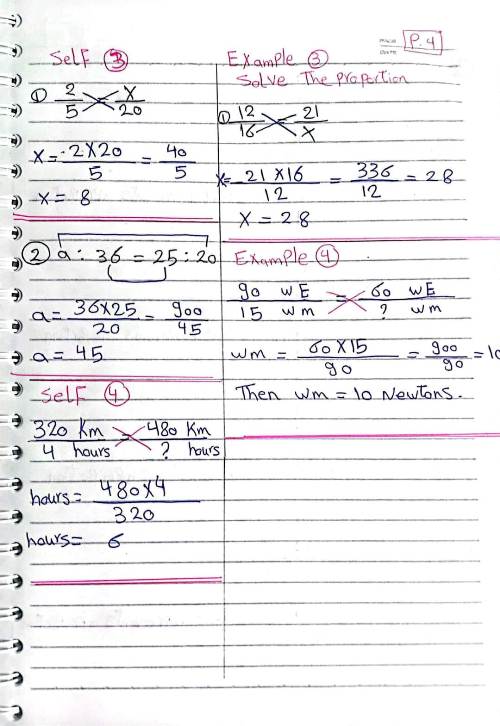 P.4
Self 3
① 2/5 = x/20
x = 2×20/5 = 40/5
x = 8
② a : 36 = 25 : 20
a = 36×25/20 = 900/45
a = 45
Self ④
320 Km/4 hours = 480 Km/? hours
hours = 480×4/320
hours = 6
Example ③
Solve The Proportion
① 12/16 = 21/x
x = 21×16/12 = 336/12 = 28
x = 28
Example ④
90 WE/15 Wm = 60 WE/? Wm
Wm = 60×15/90 = 900/90 = 10
Then Wm = 10 Newtons.